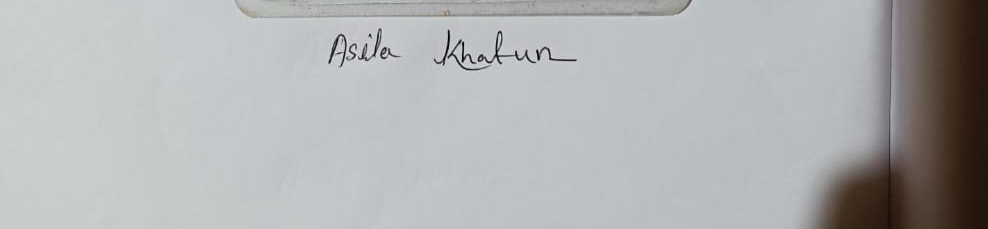 Asila Khatun